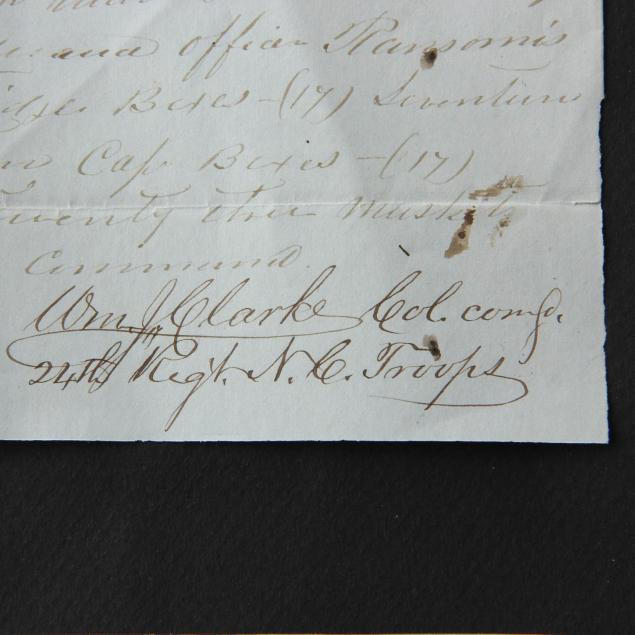 officer Ransom's
Boxes - (17) Seventeen
Cap Boxes - (17)
Twenty three Muskets
Command.
Wm. J. Clarke Col. comg.
24th Regt. N. C. Troops